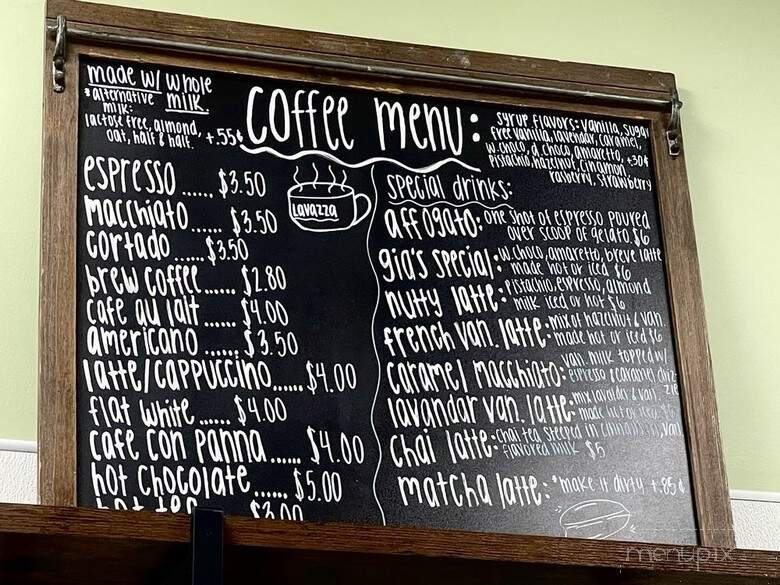 made w/ whole
*alternative milk.
milk:
lactose free, almond,
oat, half & half. +.55¢
coffee menu:
syrup flavors: vanilla, sugar
free vanilla, lavendar, caramel,
w. choco, d. choco, amaretto, +30¢
pistachio, hazelnut, cinnamon,
rasberry, strawberry
espresso ...... $3.50
macchiato ...... $3.50
cortado ...... $3.50
brew coffee ...... $2.80
cafe au lait ...... $4.00
americano ...... $3.50
latte/cappuccino ...... $4.00
flat white ...... $4.00
cafe con panna ...... $4.00
hot chocolate ...... $5.00
hot tea $3.00
Lavazza
special drinks:
affogato: one shot of espresso poured
over scoop of gelato. $6
gia's special: w. choco, amaretto, breve latte
made hot or iced $6
nutty latte: pistachio, espresso, almond
milk iced or hot $6
french van. latte: mix of hazelnut & van.
made hot or iced $6
caramel macchiato: van. milk topped w/
espresso & caramel
lavandar van. latte: mix lavandar & van.
made hot or iced $6
chai latte: chai tea steeped in cinnamon, van.
flavored milk $5
matcha latte: *make it dirty +.85¢
menupix